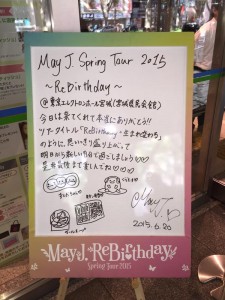 May J. Spring Tour 2015
~ReBirthday~
@東京エレクトロンホール宮城(宮城県民会館)
今日は来てくれて本当にありがとう!!
ツアータイトル「ReBirthday・生まれ変わる」
のように、思いっきり盛り上がって
明日から新しい自分で過ごしましょう♡♡♡
最後まで楽しんでね♡♡♡
May J.
2015.6.20
May J. ReBirthday
Spring Tour 2015